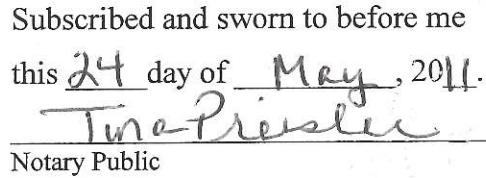 Subscribed and sworn to before me
this 24 day of May, 2011.
Tina Preisler
Notary Public